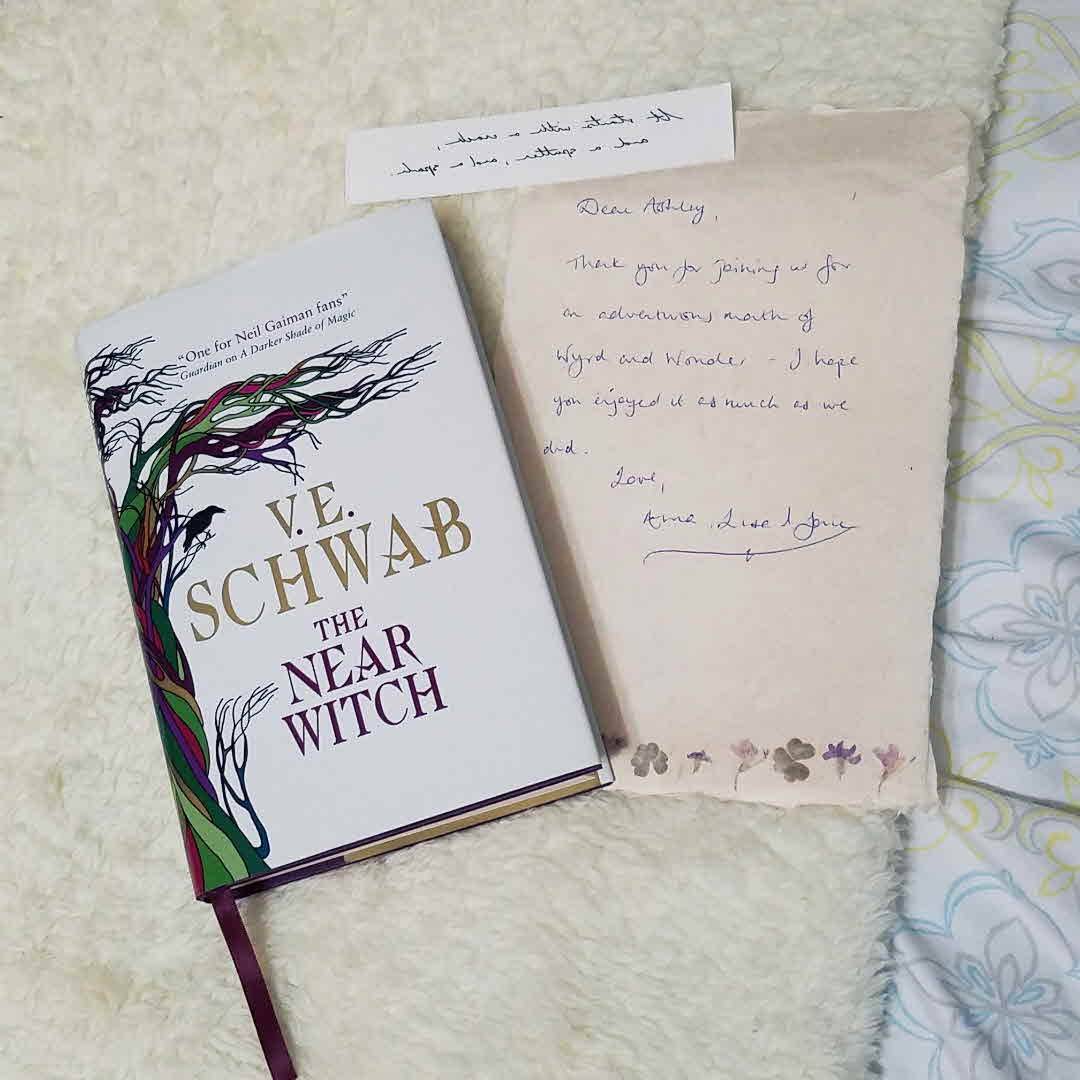 It starts with a crack,
and a sputter, and a spark.
Dear Ashley,
Thank you for joining us for
an adventurous month of
Wyrd and Wonder - I hope
you enjoyed it as much as we
did.
Love,
Anna, Lisa & Jorie
"One for Neil Gaiman fans"
Guardian on A Darker Shade of Magic
V.E.
SCHWAB
THE
NEAR
WITCH